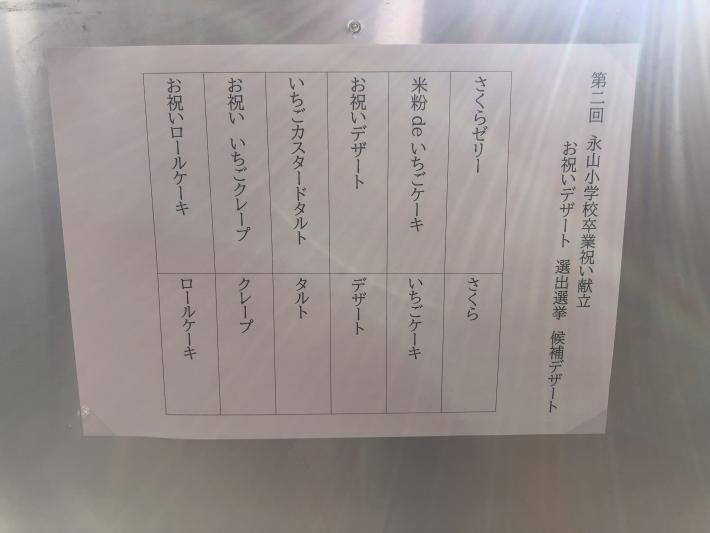 第二回 永山小学校卒業祝い献立
お祝いデザート 選出選挙 候補デザート
さくらゼリー
さくら
米粉 de いちごケーキ
いちごケーキ
お祝いデザート
デザート
いちごカスタードタルト
タルト
お祝い いちごクレープ
クレープ
お祝いロールケーキ
ロールケーキ